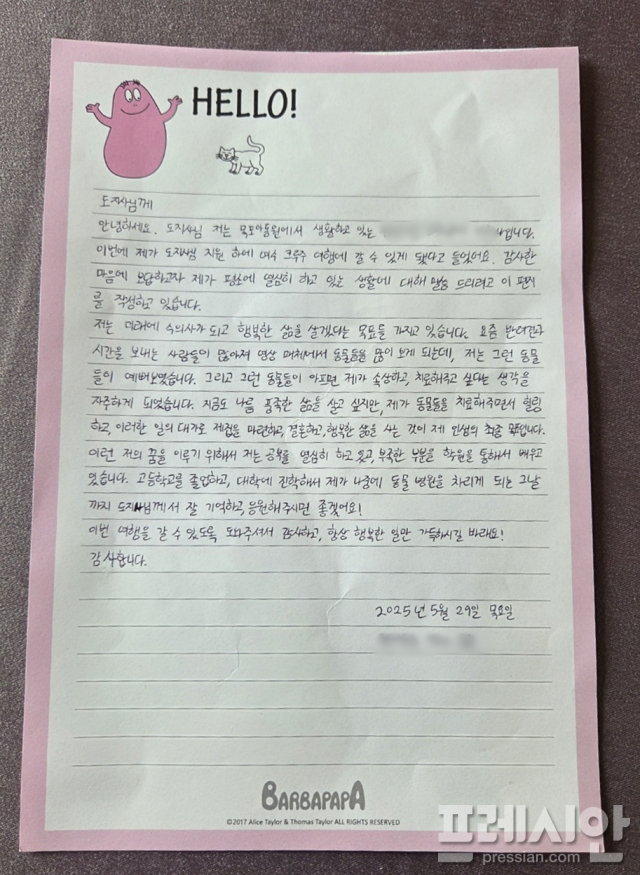 HELLO!
도지사님께
안녕하세요. 도지사님 저는 목포아동원에서 생활하고 있는 입니다.
이번에 제가 도지사님 지원 하에 여수 크루주 여행에 갈 수 있게 됐다고 들었어요. 감사한
마음에 보답하고자 제가 평소에 열심히 하고 있는 생활에 대해 말씀 드리려고 이 편지
를 작성하고 있습니다.
저는 미래에 수의사가 되고 행복한 삶을 살겠다는 목표를 가지고 있습니다. 요즘 반려견과
시간을 보내는 사람들이 많아져 영상 매체에서 동물들을 많이 보게 되는데, 저는 그런 동물
들이 예뻐보였습니다. 그리고 그런 동물들이 아프면 제가 속상하고, 치료해주고 싶다는 생각을
자주하게 되었습니다. 지금도 나름 풍족한 삶을 살고 싶지만, 제가 동물들을 치료해주면서 힐링
하고, 이러한 일의 대가로 제집을 마련하고, 결혼하고, 행복한 삶을 사는 것이 제 인생의 최종 입니다.
이런 저의 꿈을 이루기 위해서 저는 공부를 열심히 하고 있고, 부족한 부분을 학원을 통해서 배우고
있습니다. 고등학교를 졸업하고, 대학에 진학해서 제가 나중에 동물 병원을 차리게 되는 그날
까지 도지사님께서 잘 기억하고, 응원해주시면 좋겠어요!
이번 여행을 갈 수 있도록 도와주셔서 감사하고, 항상 행복한 일만 가득하시길 바래요!
감사합니다.
2025년 5월 29일 목요일
BARBAPAPA
©2017 Alice Taylor & Thomas Taylor ALL RIGHTS RESERVED
프레시안
pressian.com